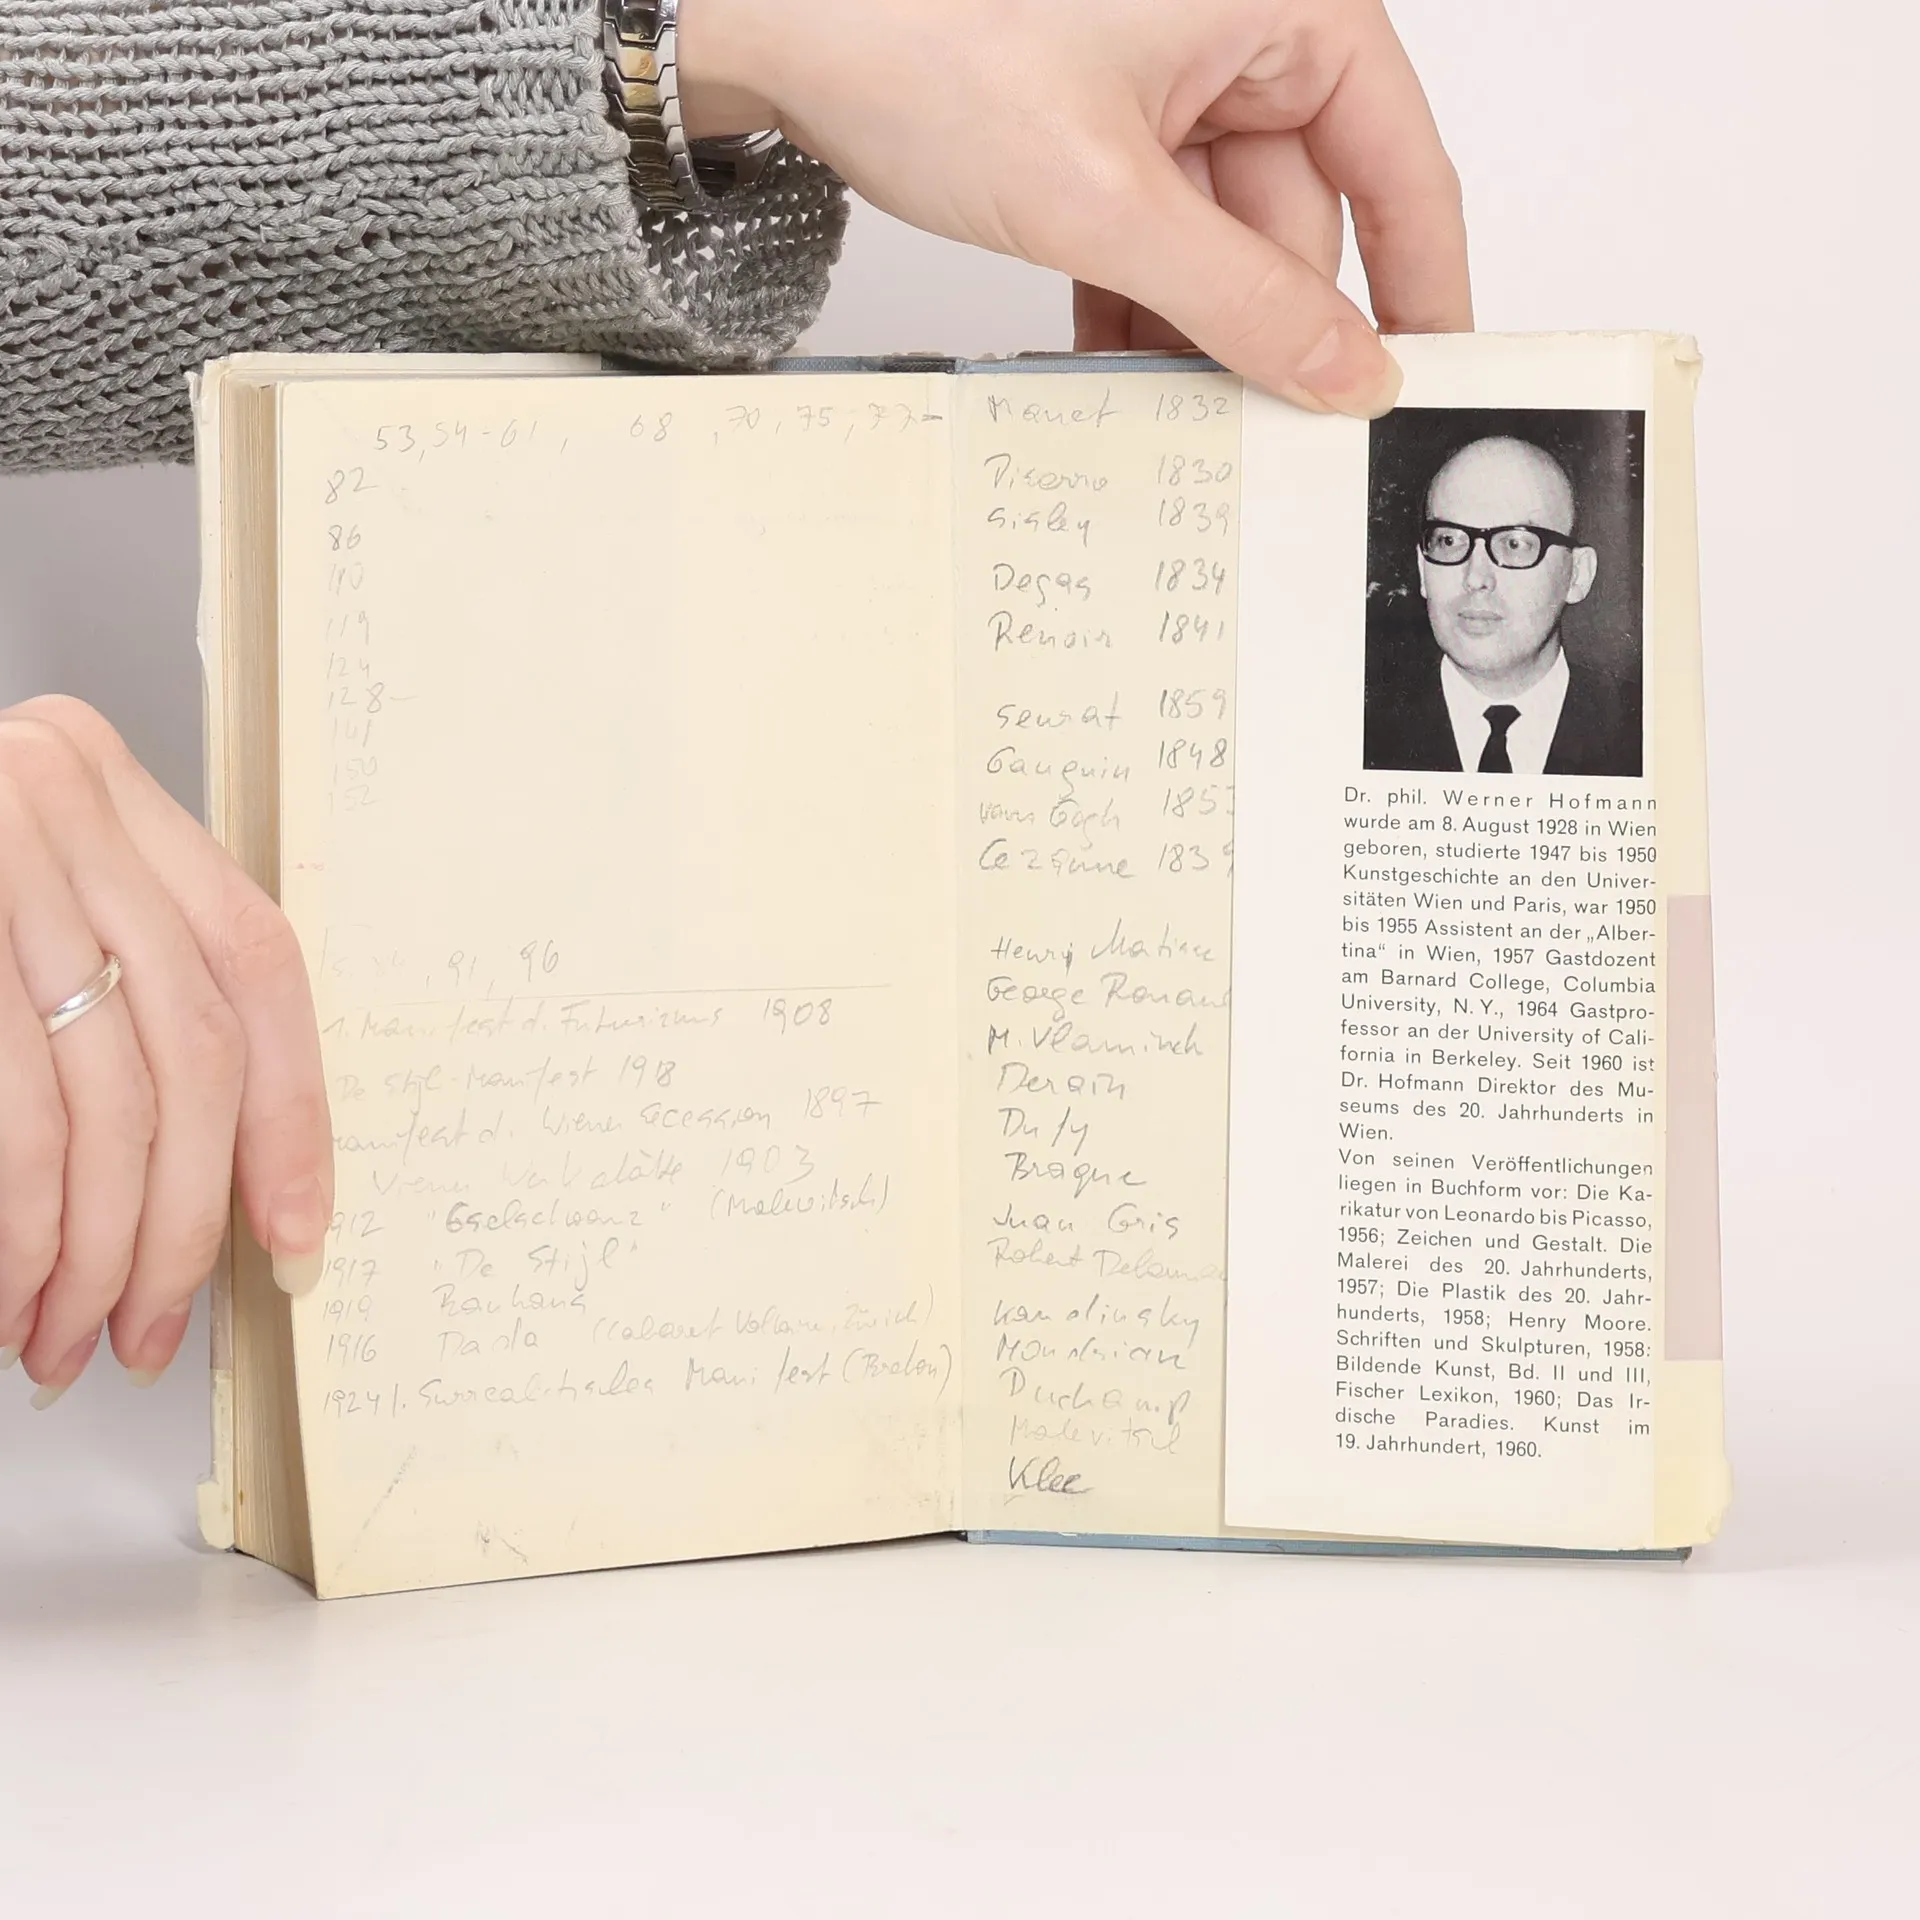 53, 54-61, 68, 70, 75, 77-
82
86
110
119
124
128-
141
150
152
, 91, 96
1. Manifest d. Futurismus 1908
De Stijl-Manifest 1918
Manifest d. Wiener Secession 1897
Wiener Werkstätte 1903
1912 "Eselschwanz" (Malewitsch)
1917 "De Stijl"
1919 Bauhaus
1916 Dada (Cabaret Voltaire, Zürich)
1924 1. Surrealistisches Manifest (Breton)
Manet 1832
Pisarro 1830
Sisley 1839
Degas 1834
Renoir 1841
Seurat 1859
Gauguin 1848
van Gogh 1853
Cezanne 1839
Henry Matisse
George Rouau
M. Vlaminck
Derain
Dufy
Braque
Juan Gris
Robert Delaunay
Kandinsky
Mondrian
Duchamp
Malevitsch
Klee
Dr. phil. Werner Hofmann
wurde am 8. August 1928 in Wien
geboren, studierte 1947 bis 1950
Kunstgeschichte an den Univer-
sitäten Wien und Paris, war 1950
bis 1955 Assistent an der „Alber-
tina“ in Wien, 1957 Gastdozent
am Barnard College, Columbia
University, N. Y., 1964 Gastpro-
fessor an der University of Cali-
fornia in Berkeley. Seit 1960 ist
Dr. Hofmann Direktor des Mu-
seums des 20. Jahrhunderts in
Wien.
Von seinen Veröffentlichungen
liegen in Buchform vor: Die Ka-
rikatur von Leonardo bis Picasso,
1956; Zeichen und Gestalt. Die
Malerei des 20. Jahrhunderts,
1957; Die Plastik des 20. Jahr-
hunderts, 1958; Henry Moore.
Schriften und Skulpturen, 1958:
Bildende Kunst, Bd. II und III,
Fischer Lexikon, 1960; Das Ir-
dische Paradies. Kunst im
19. Jahrhundert, 1960.